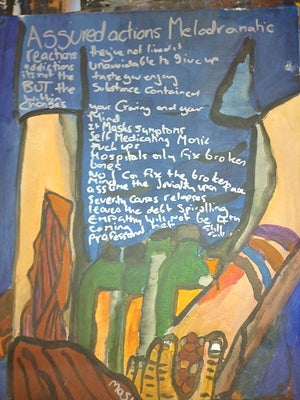 Assured actions Melodramatic
reactions they've not lived it
addictions unavoidable to give up
its not the taste you enjoy
BUT the Substance contained
within
your Craving and your
Mind
it Masks symptoms
Self Medicating Manic
Fuck ups
Hospitals only fix broken
bones
No 1 Can fix the broken
Mind
assume the Joviality upon face
Severity Causes relapses
leaves the debt Spiralling
Empathy Will not be
coming
professional help still